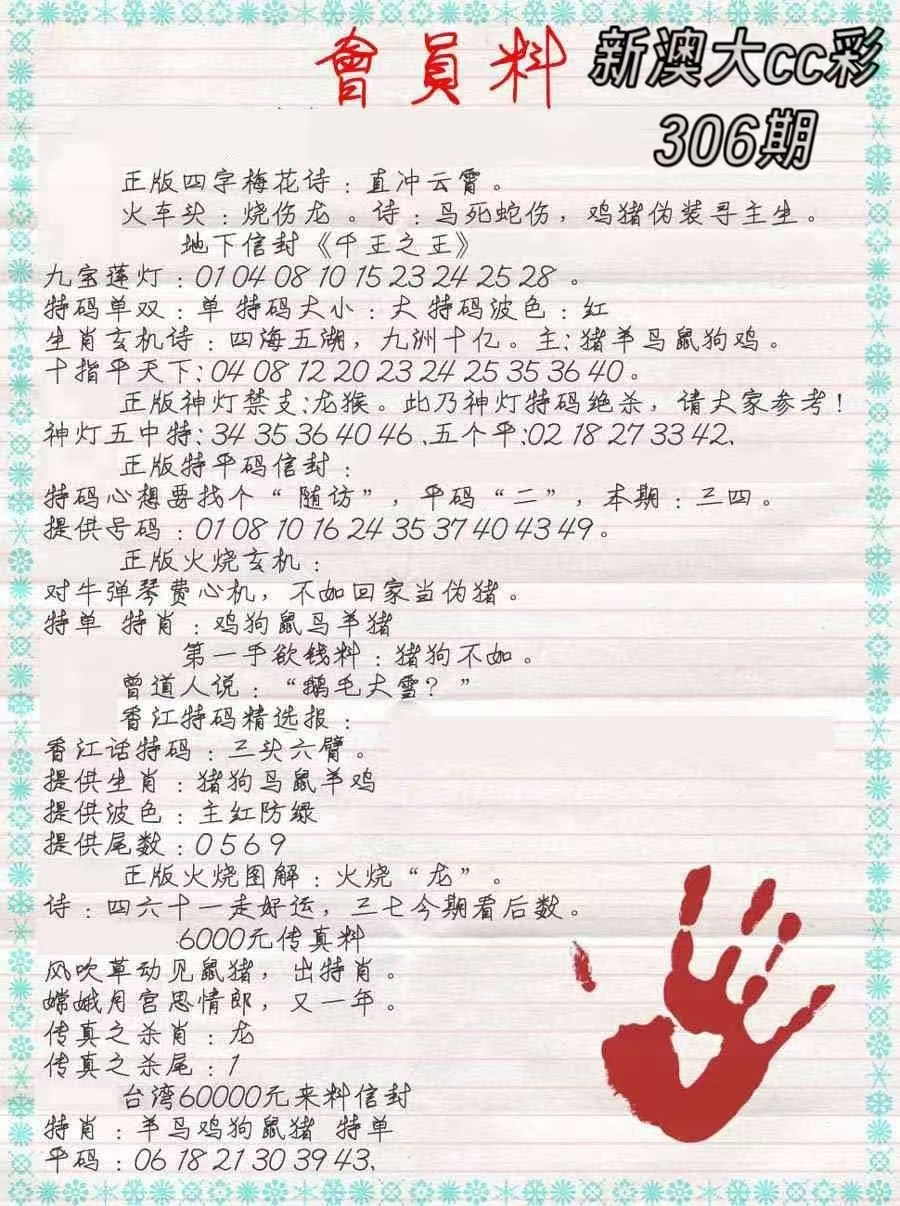 會員料
新澳大cc彩
306期
正版四字梅花诗：直冲云霄。
火车头：烧伤龙。诗：鸟死蛇伤，鸡猪伪装寻主生。
地下信封《千王之王》
九宝莲灯：01 04 08 10 15 23 24 25 28 。
特码单双：单 特码大小：大 特码波色：红
生肖玄机诗：四海五湖，九洲十亿。主:猪羊鸟鼠狗鸡。
十指平天下:04 08 12 20 23 24 25 35 36 40。
正版神灯禁支:龙猴。此乃神灯特码绝杀，请大家参考！
神灯五中特:34 35 36 40 46 、五个平:02 18 27 33 42、
正版特平码信封：
特码心想要找个“随访”，平码“二”，本期：三四。
提供号码：01 08 10 16 24 35 37 40 43 49。
正版火烧玄机：
对牛弹琴费心机，不如回家当伪猪。
特单 特肖：鸡狗鼠鸟羊猪
第一手欲钱料：猪狗不如。
曾道人说：“鹅毛大雪？”
香江特码精选报：
香江话特码：三头六臂。
提供生肖：猪狗鸟鼠羊鸡
提供波色：主红防绿
提供尾数：0 5 6 9
正版火烧图解：火烧“龙”。
诗：四六十一走好运，三七今期看后数。
6000元传真料
风吹草动见鼠猪，出特肖。
嫦娥月宫思情郎，又一年。
传真之杀肖：龙
传真之杀尾：1
台湾60000元来料信封
特肖：羊鸟鸡狗鼠猪 特单
平码：06 18 21 30 39 43、